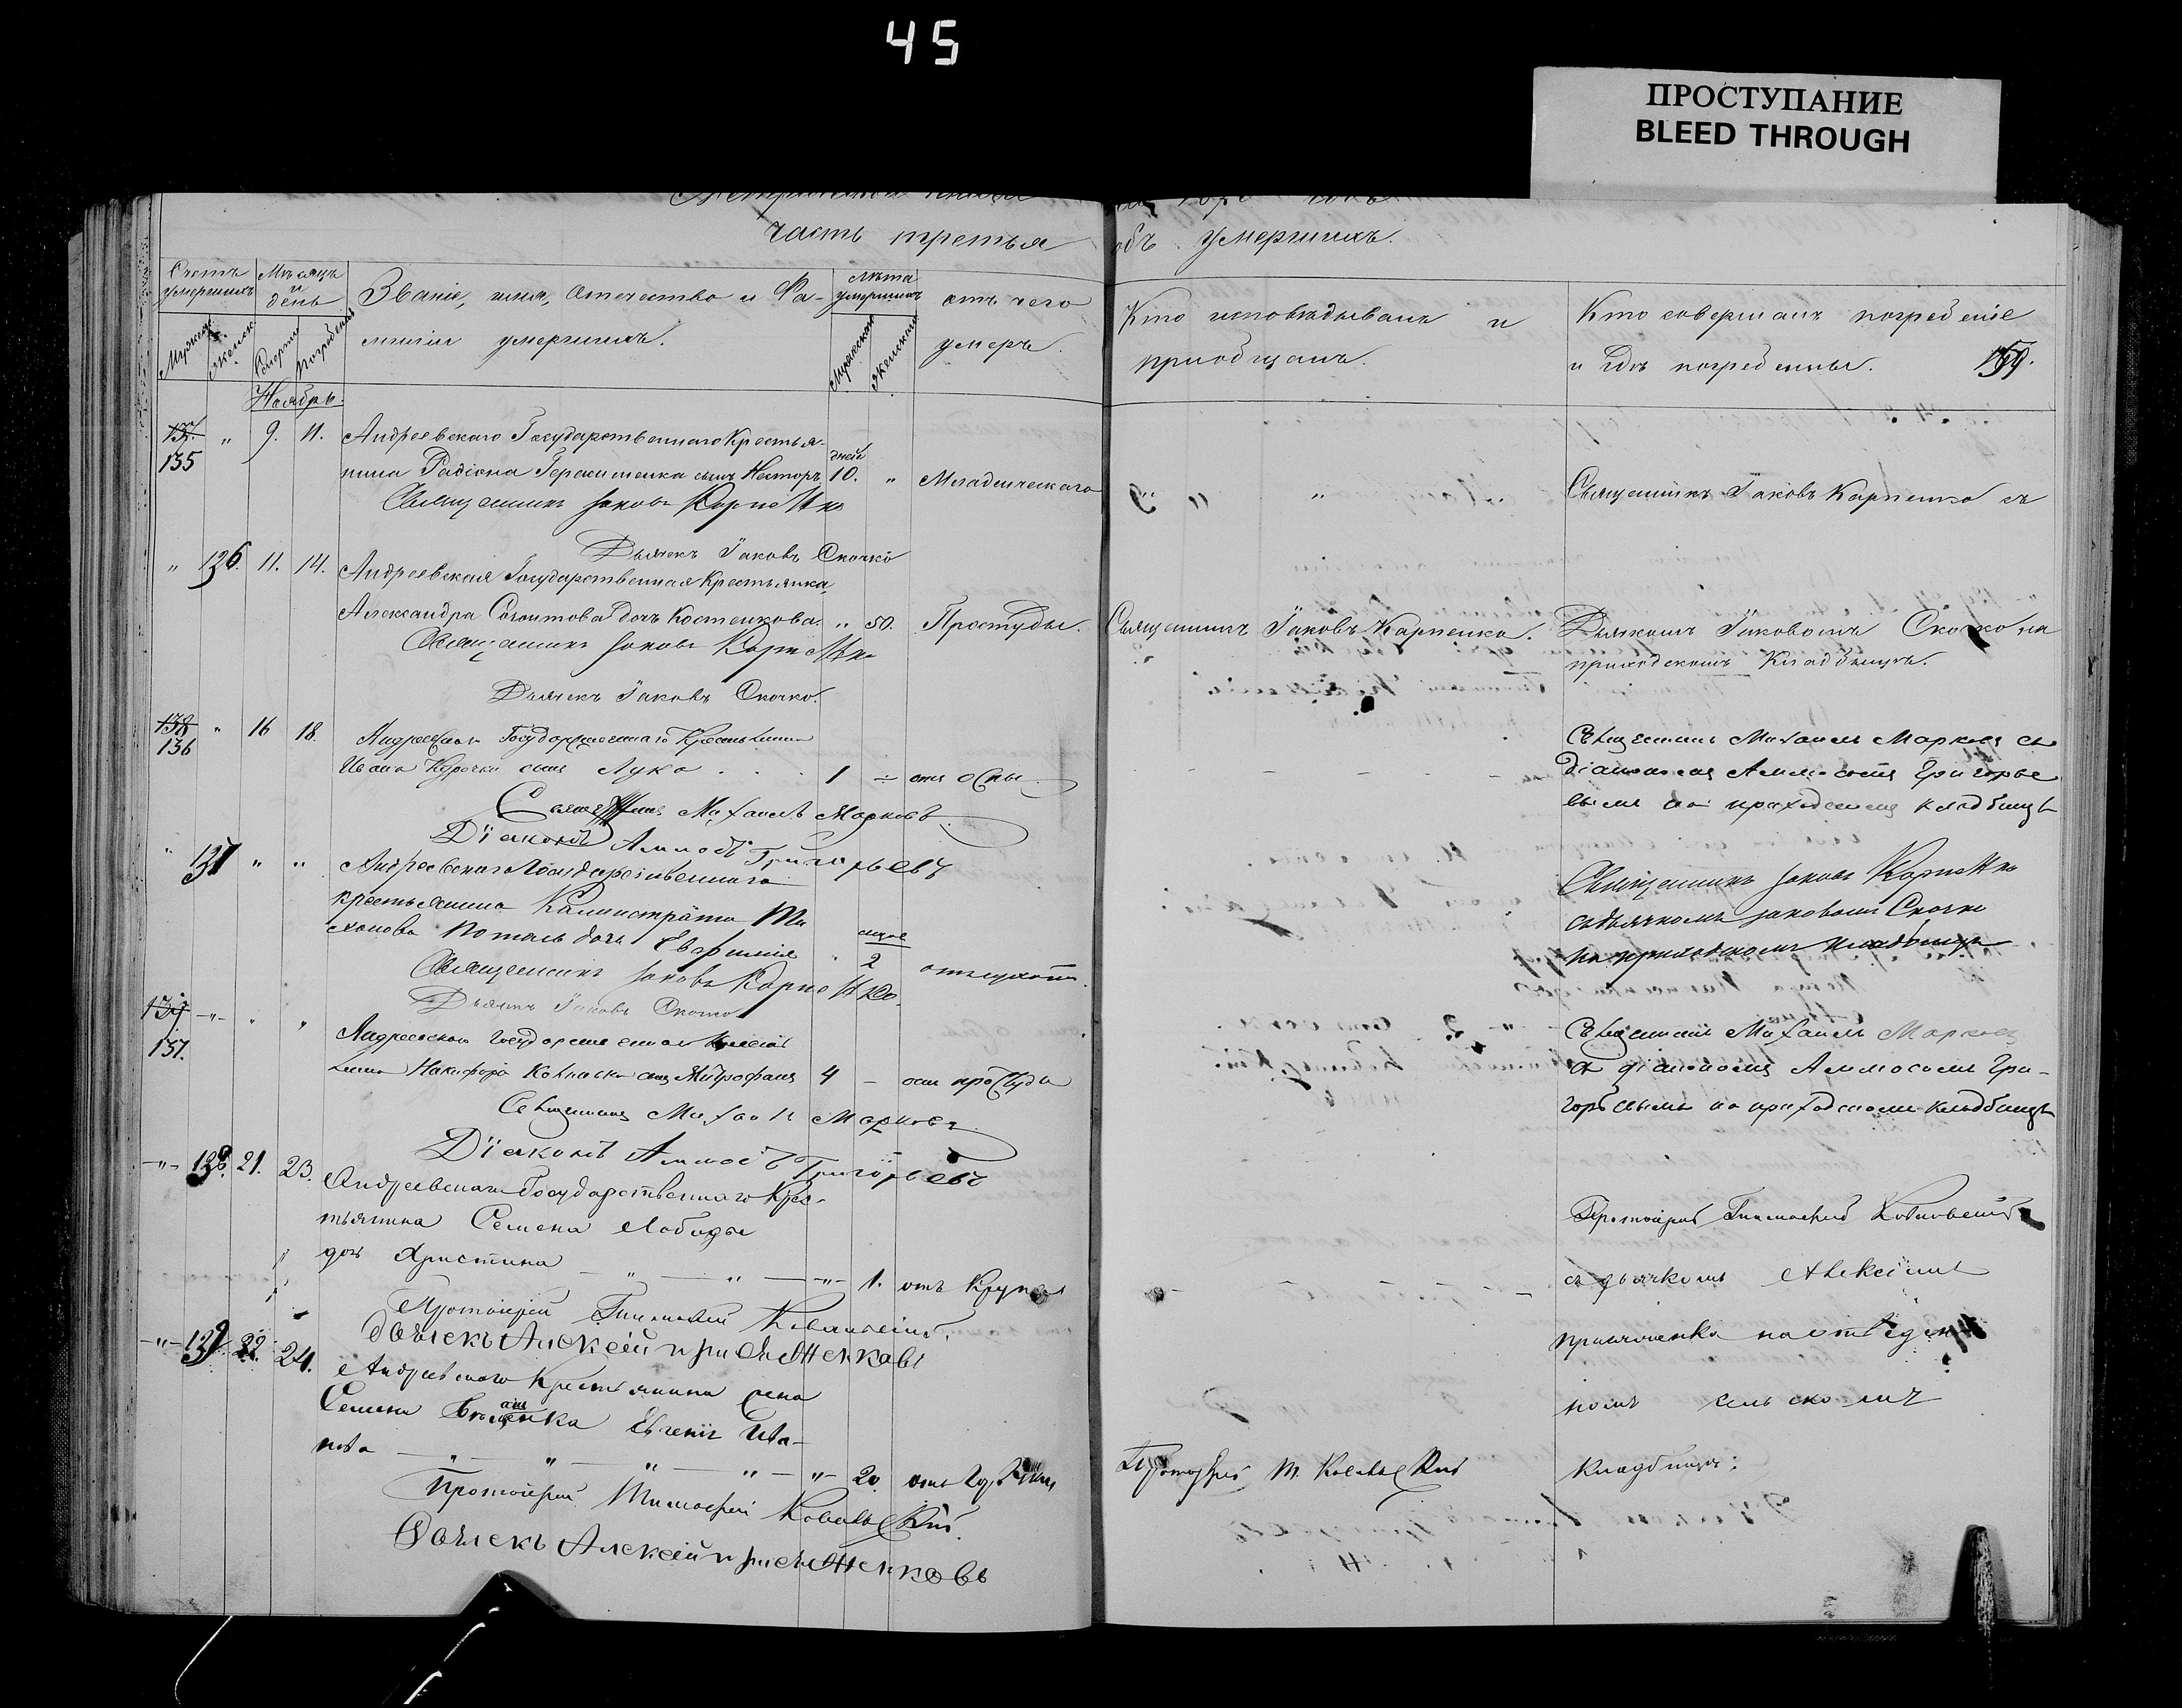 45
ПРОСТУПАНИЕ
BLEED THROUGH
часть третья
объ умершихъ.
Счетъ умершихъ
Мѣсяцъ и день
Званіе, имя, отечество и Фа-
миліи умершихъ.
Лѣта умершихъ
отъ чего
умеръ.
Кто исповѣдывалъ и
приобщалъ.
Кто совершалъ погребеніе
и гдѣ погребены.
Мужеска
Женск
Смерти
Погребенія
Мужескаго
Женскаго
Ноябрь.
135 " 9. 11. Андреевскаго Государственнаго Крестья-
нина Радіона Герасименка сынъ Несторъ дней 10. " Младенческаго
Священникъ Іаковъ Карпенко
Дьячекъ Іаковъ Скочко
" " Священникъ Іаковъ Карпенко съ
" 136. 11. 14. Андреевская Государственная Крестьянка
Александра дочь Костенкова. " 50. Простуды.
Священникъ Іаковъ Карпенко
Дьячекъ Іаковъ Скочко.
Священникъ Іаковъ Карпенко.
Дьячкомъ Іаковомъ Скочко на
приходскомъ Кладбищѣ.
138
136 " 16 18. Андреевскаго Государственнаго Крестьянина
Ивана сынъ Лука . . . 1 ÷ отъ оспы
Священникъ Михаилъ Марковъ
Діаконъ Аммосъ Григорьевъ
Священникъ Михаилъ Марковъ съ
діакономъ Аммосомъ Григорье
вымъ на приходскомъ кладбищѣ
" 137 " " Андреевскаго Государственнаго
крестьянина Калистрата Ти
хонова дочь Евфимія " 2
Священникъ Іаковъ Карпенко
Дьячекъ Іаковъ Скочко
Священникъ Іаковъ Карпенко
съ дьячкомъ Іаковомъ Скочко
на приходскомъ кладбищѣ
139
137. " " Андреевскаго Государственнаго Крестья
нина Никифора сынъ Митрофанъ 4 - отъ простуды
Священникъ Михаилъ Марковъ
Діаконъ Аммосъ Григорьевъ
Священникъ Михаилъ Марковъ
съ діакономъ Аммосомъ Гри-
горьевымъ на приходскомъ кладбищѣ
-"- 138. 21. 23. Андреевскаго Государственнаго Крес-
тьянина Семена Лободы
дочь Христина - " - " - " - 1. отъ Крупа
Протоіерей Тимофей Ковальскій.
дьячекъ Алексей
Протоіерей Тимофей Ковальскій
съ дьячкомъ Алексіемъ
на отведен
номъ сельскомъ
Кладбищѣ;
-"- 139. 22. 24. Андреевскаго Крестьянина жена
Семена Евгенія Ива-
нова - " - " - " - " - " - 20. отъ
Протоіерей Тимофей Ковальскій.
дьячекъ Алексей
Протоіерей Т. Ковальскій